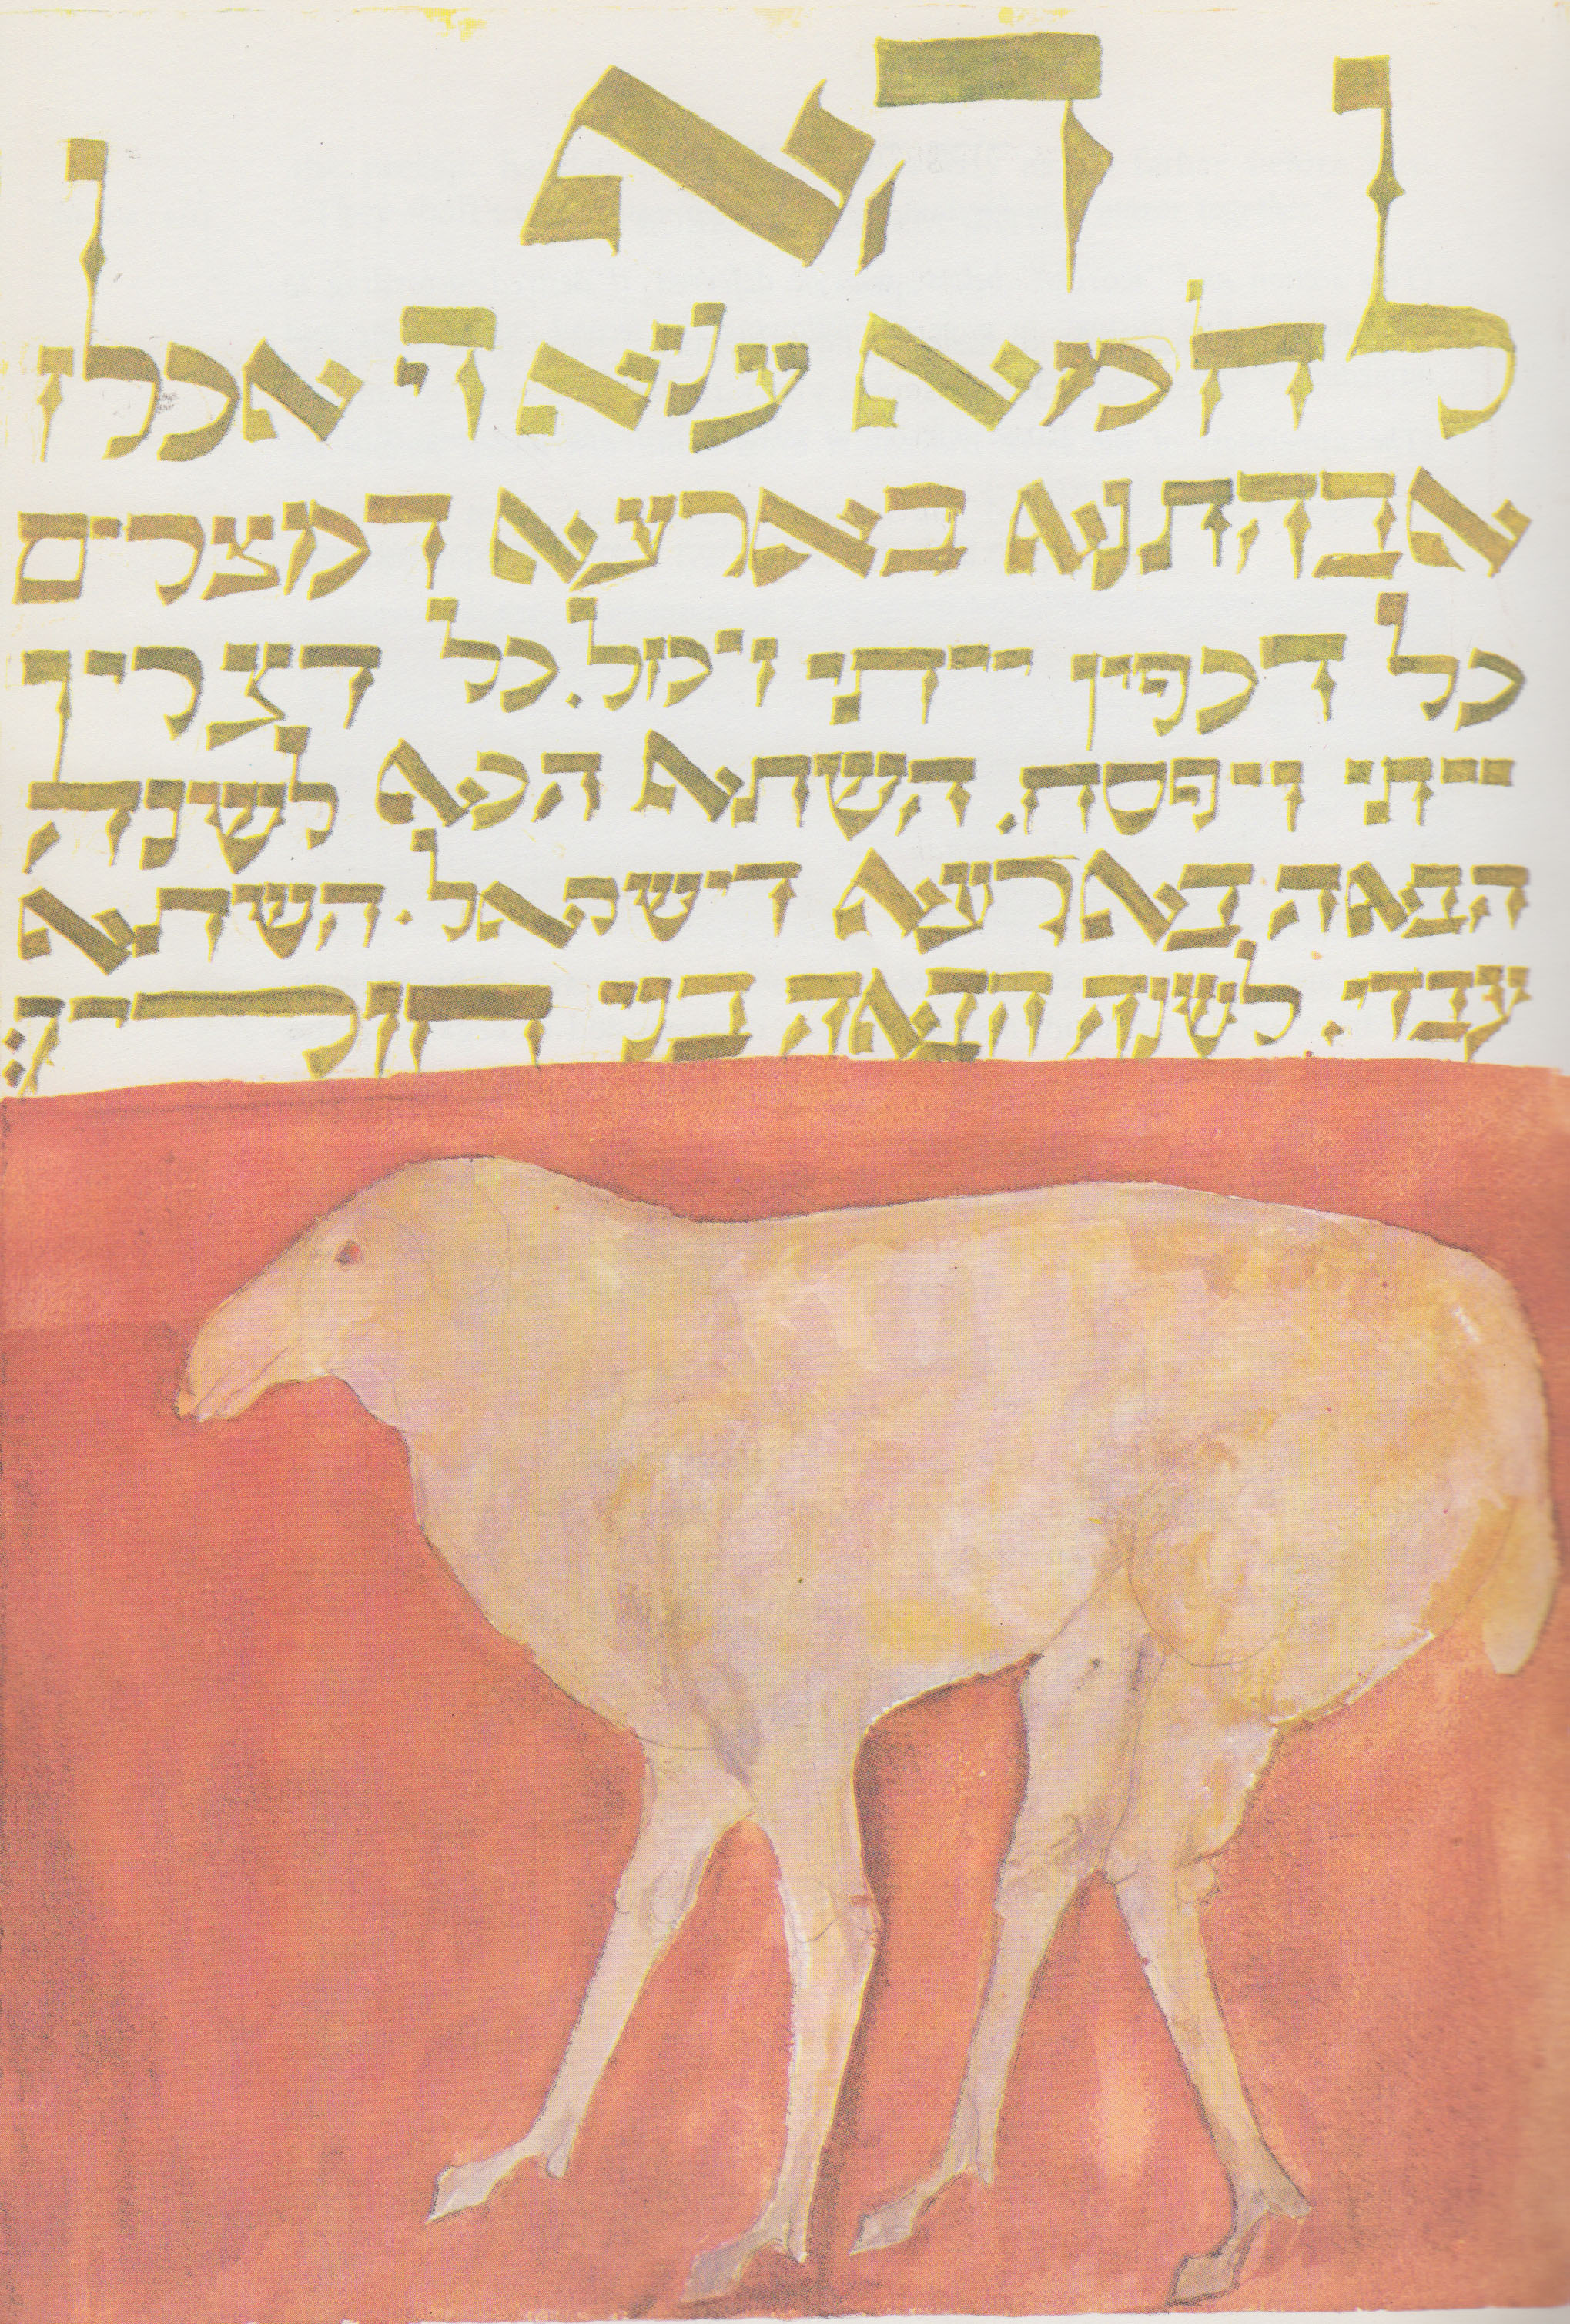 הא
לחמא עניא די אכלו
אבהתנא בארעא דמצרים
כל דכפין ייתי ויכול. כל דצריך
ייתי ויפסח. השתא הכא לשנה
הבאה בארעא דישראל. השתא
עבדי. לשנה הבאה בני חורין: